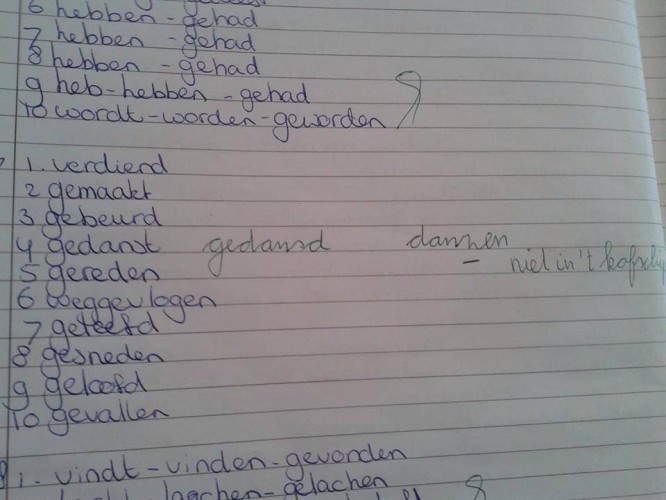 6 hebben - gehad
7 hebben - gehad
8 hebben - gehad
9 heb - hebben - gehad
10 wordt - worden - geworden
1. verdiend
2 gemaakt
3 gebeurd
4 gedanst gedansd dansen
- niet in 't kofschip
5 gereden
6 weggevlogen
7 geteefd
8 gesneden
9 geloofd
10 gevallen
1. vindt - vinden - gevonden
lachen - gelachen